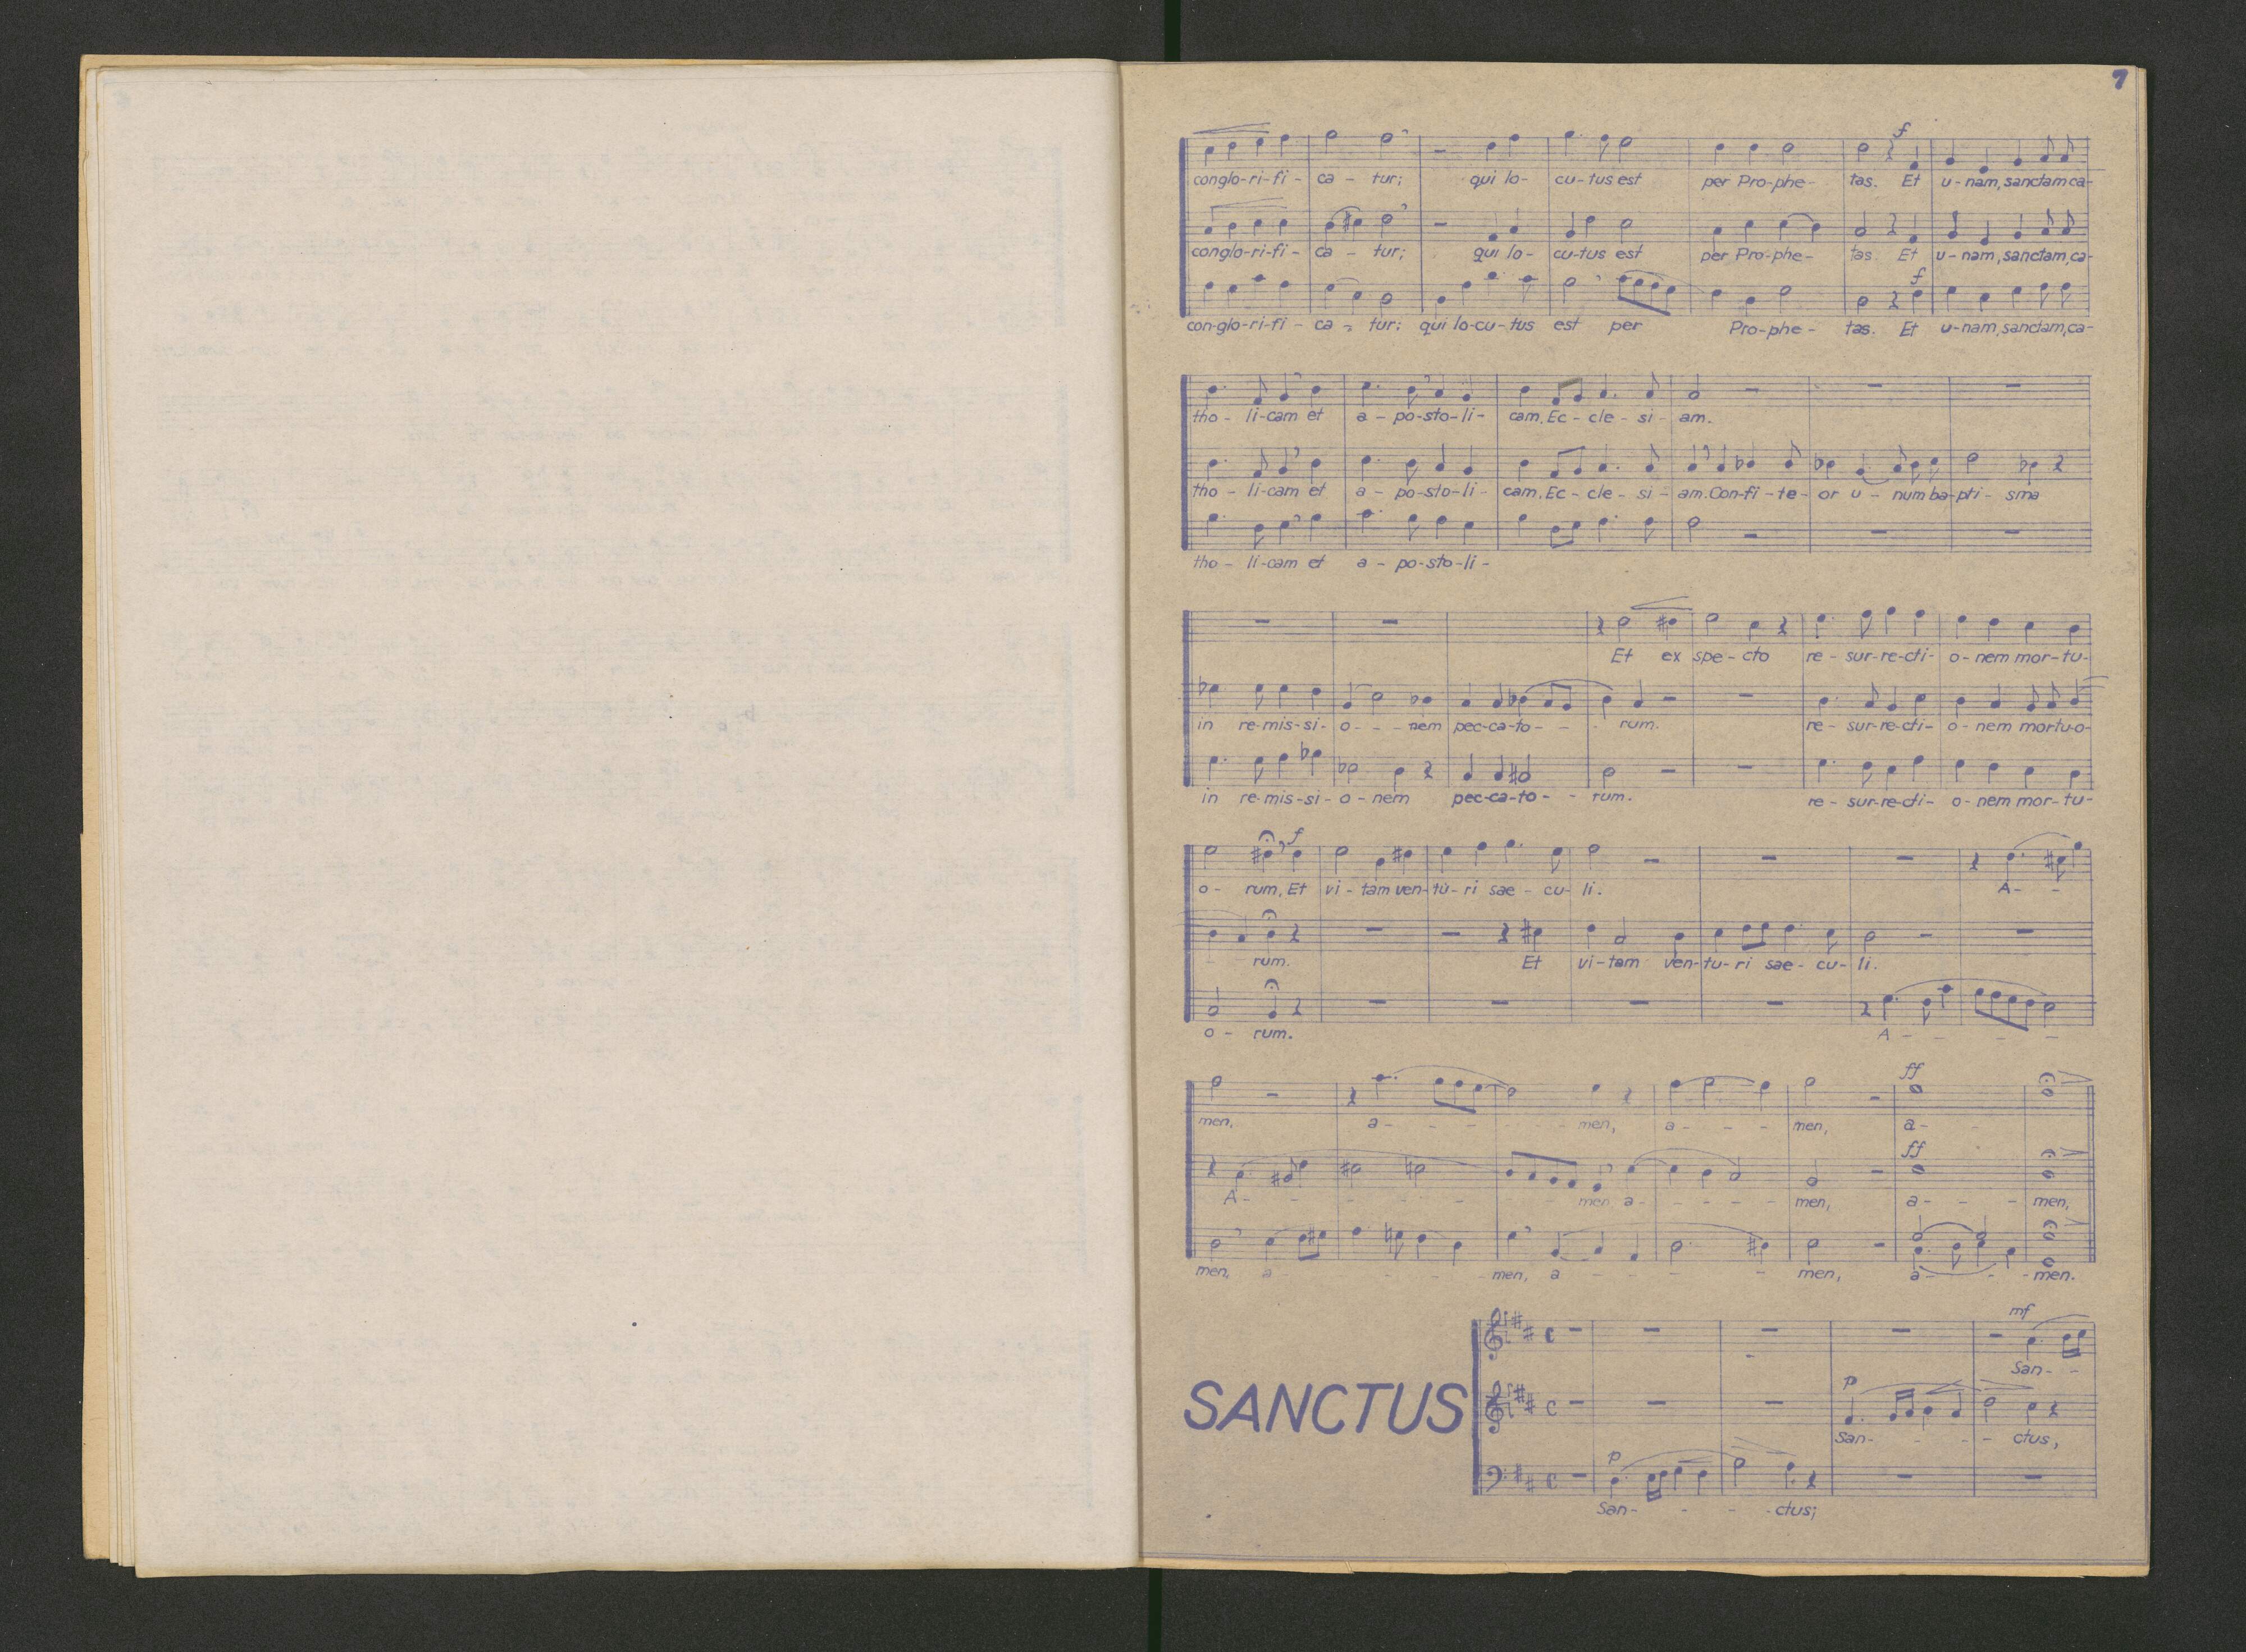 7
f
conglo-ri-fi- ca - tur; qui lo- cu-tus est per Pro-phe- tas. Et u-nam, sanctam ca-
conglo-ri-fi- ca - tur; qui lo- cu-tus est per Pro-phe- tas Et u-nam, sanctam, ca-
f
con-glo-ri-fi- ca - tur; qui lo-cu-tus est per Pro-phe- tas. Et u-nam, sanctam, ca-
tho- li-cam et a-po-sto-li- cam, Ec-cle-si- am.
tho- li-cam et a-po-sto-li- cam, Ec-cle-si- am. Con-fi-te- or u- num ba-pti- sma
tho- li-cam et a-po-sto-li-
Et ex spe-cto re-sur-re-cti- o-nem mor-tu-
in re-mis-si- o - - nem pec-ca-to - - rum. re-sur-re-cti- o-nem mortu-o-
in re-mis-si- o-nem pec-ca-to - - rum. re-sur-re-cti- o-nem mor-tu-
f
o- rum, Et vi-tam ven-tu-ri sae-cu- li. A - -
- rum. Et vi-tam ven-tu-ri sae-cu- li.
o- rum. A - - - -
ff
men, a - - - - - men, a - - - men, a - -
ff
A - - - - - - men a - - - - men, a - - men,
men, a - - - men, a - - - - men, a - - men.
mf
San- -
SANCTUS
p
San- - - - ctus,
p
San- - - - ctus;